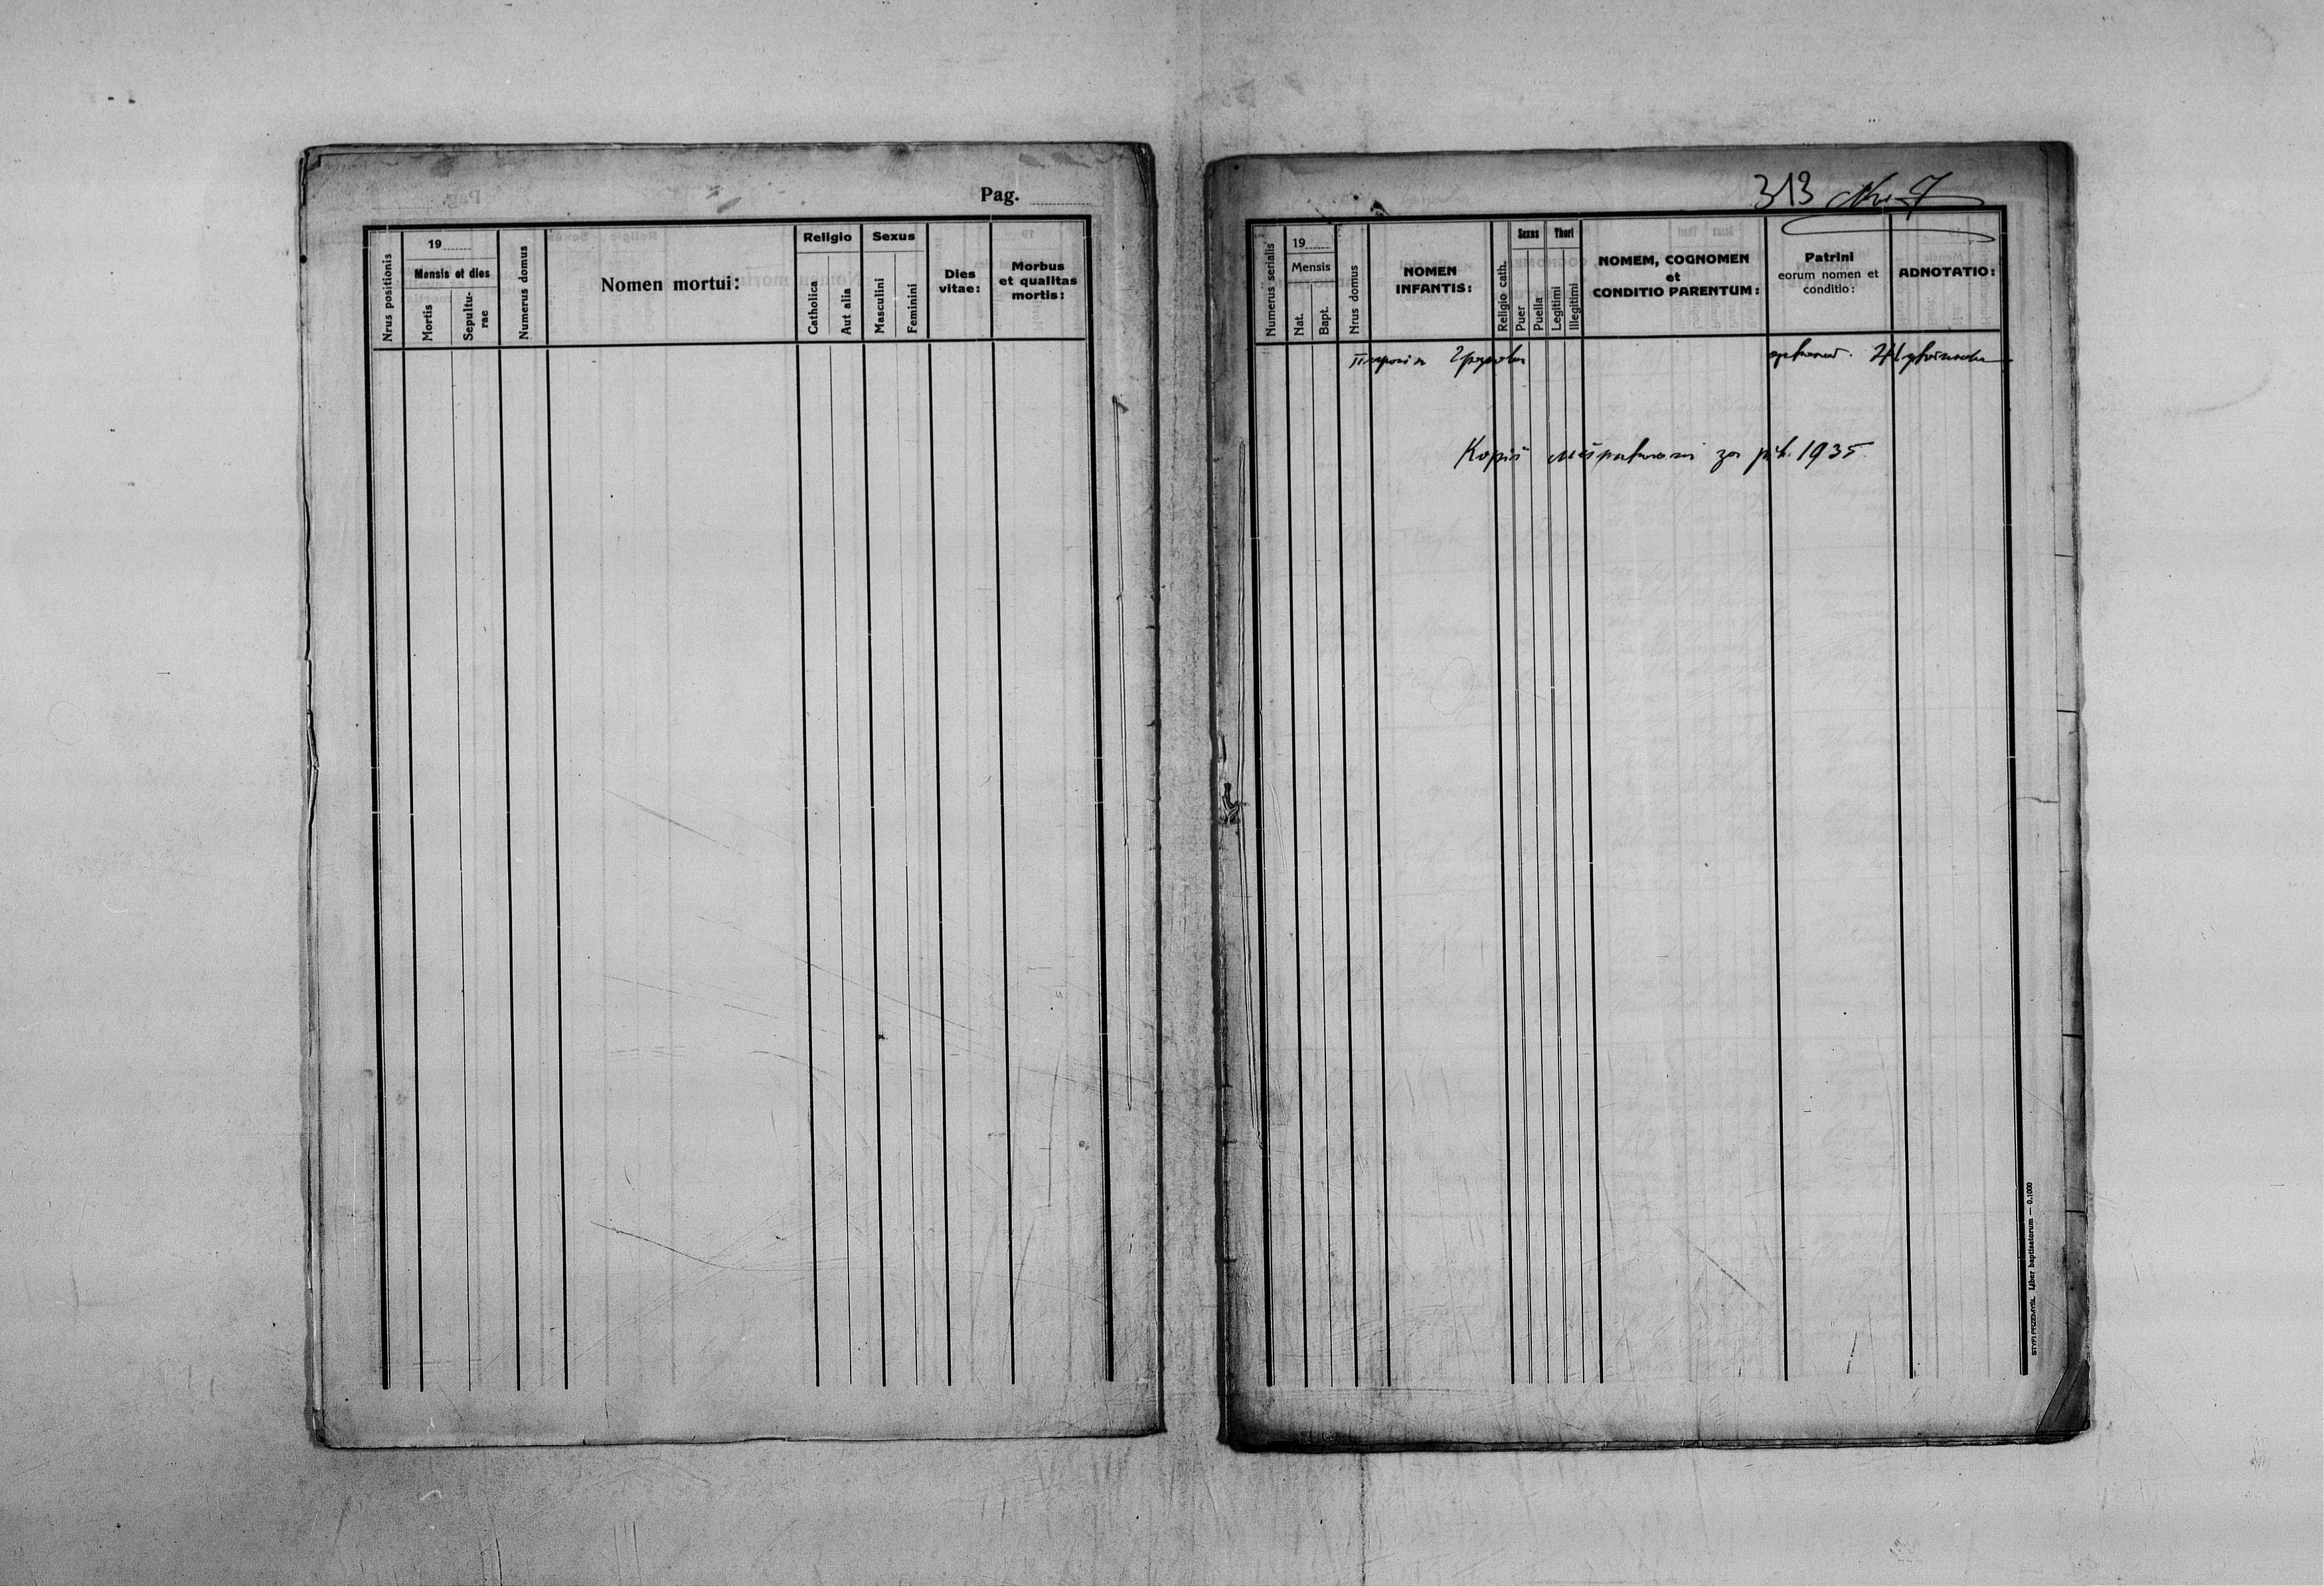 Pag.
Nrus positionis
19
Mensis et dies
Mortis
Sepultu-
rae
Numerus domus
Nomen mortui:
Religio
Catholica
Aut alia
Sexus
Masculini
Feminini
Dies
vitae:
Morbus
et qualitas
mortis:
313
Numerus serialis
19
Mensis
Nat.
Bapt.
Nrus domus
NOMEN
INFANTIS:
Religio cath.
Sexus
Puer
Puella
Thori
Legitimi
Illegitimi
NOMEM, COGNOMEN
et
CONDITIO PARENTUM:
Patrini
eorum nomen et
conditio:
ADNOTATIO:
Парохія
Копії за рік 1935
Liber baptisatorum — 0.1000